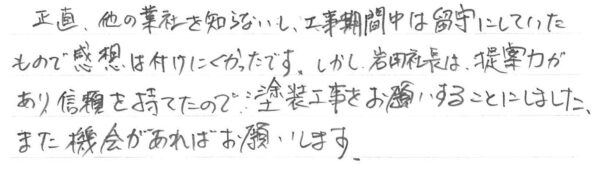 正直、他の業社を知らないし、工事期間中は留守にしていた
もので感想は付けにくかったです。しかし岩田社長は、提案力が
あり信頼を持てたので塗装工事をお願いすることにしました、
また機会があればお願いします。